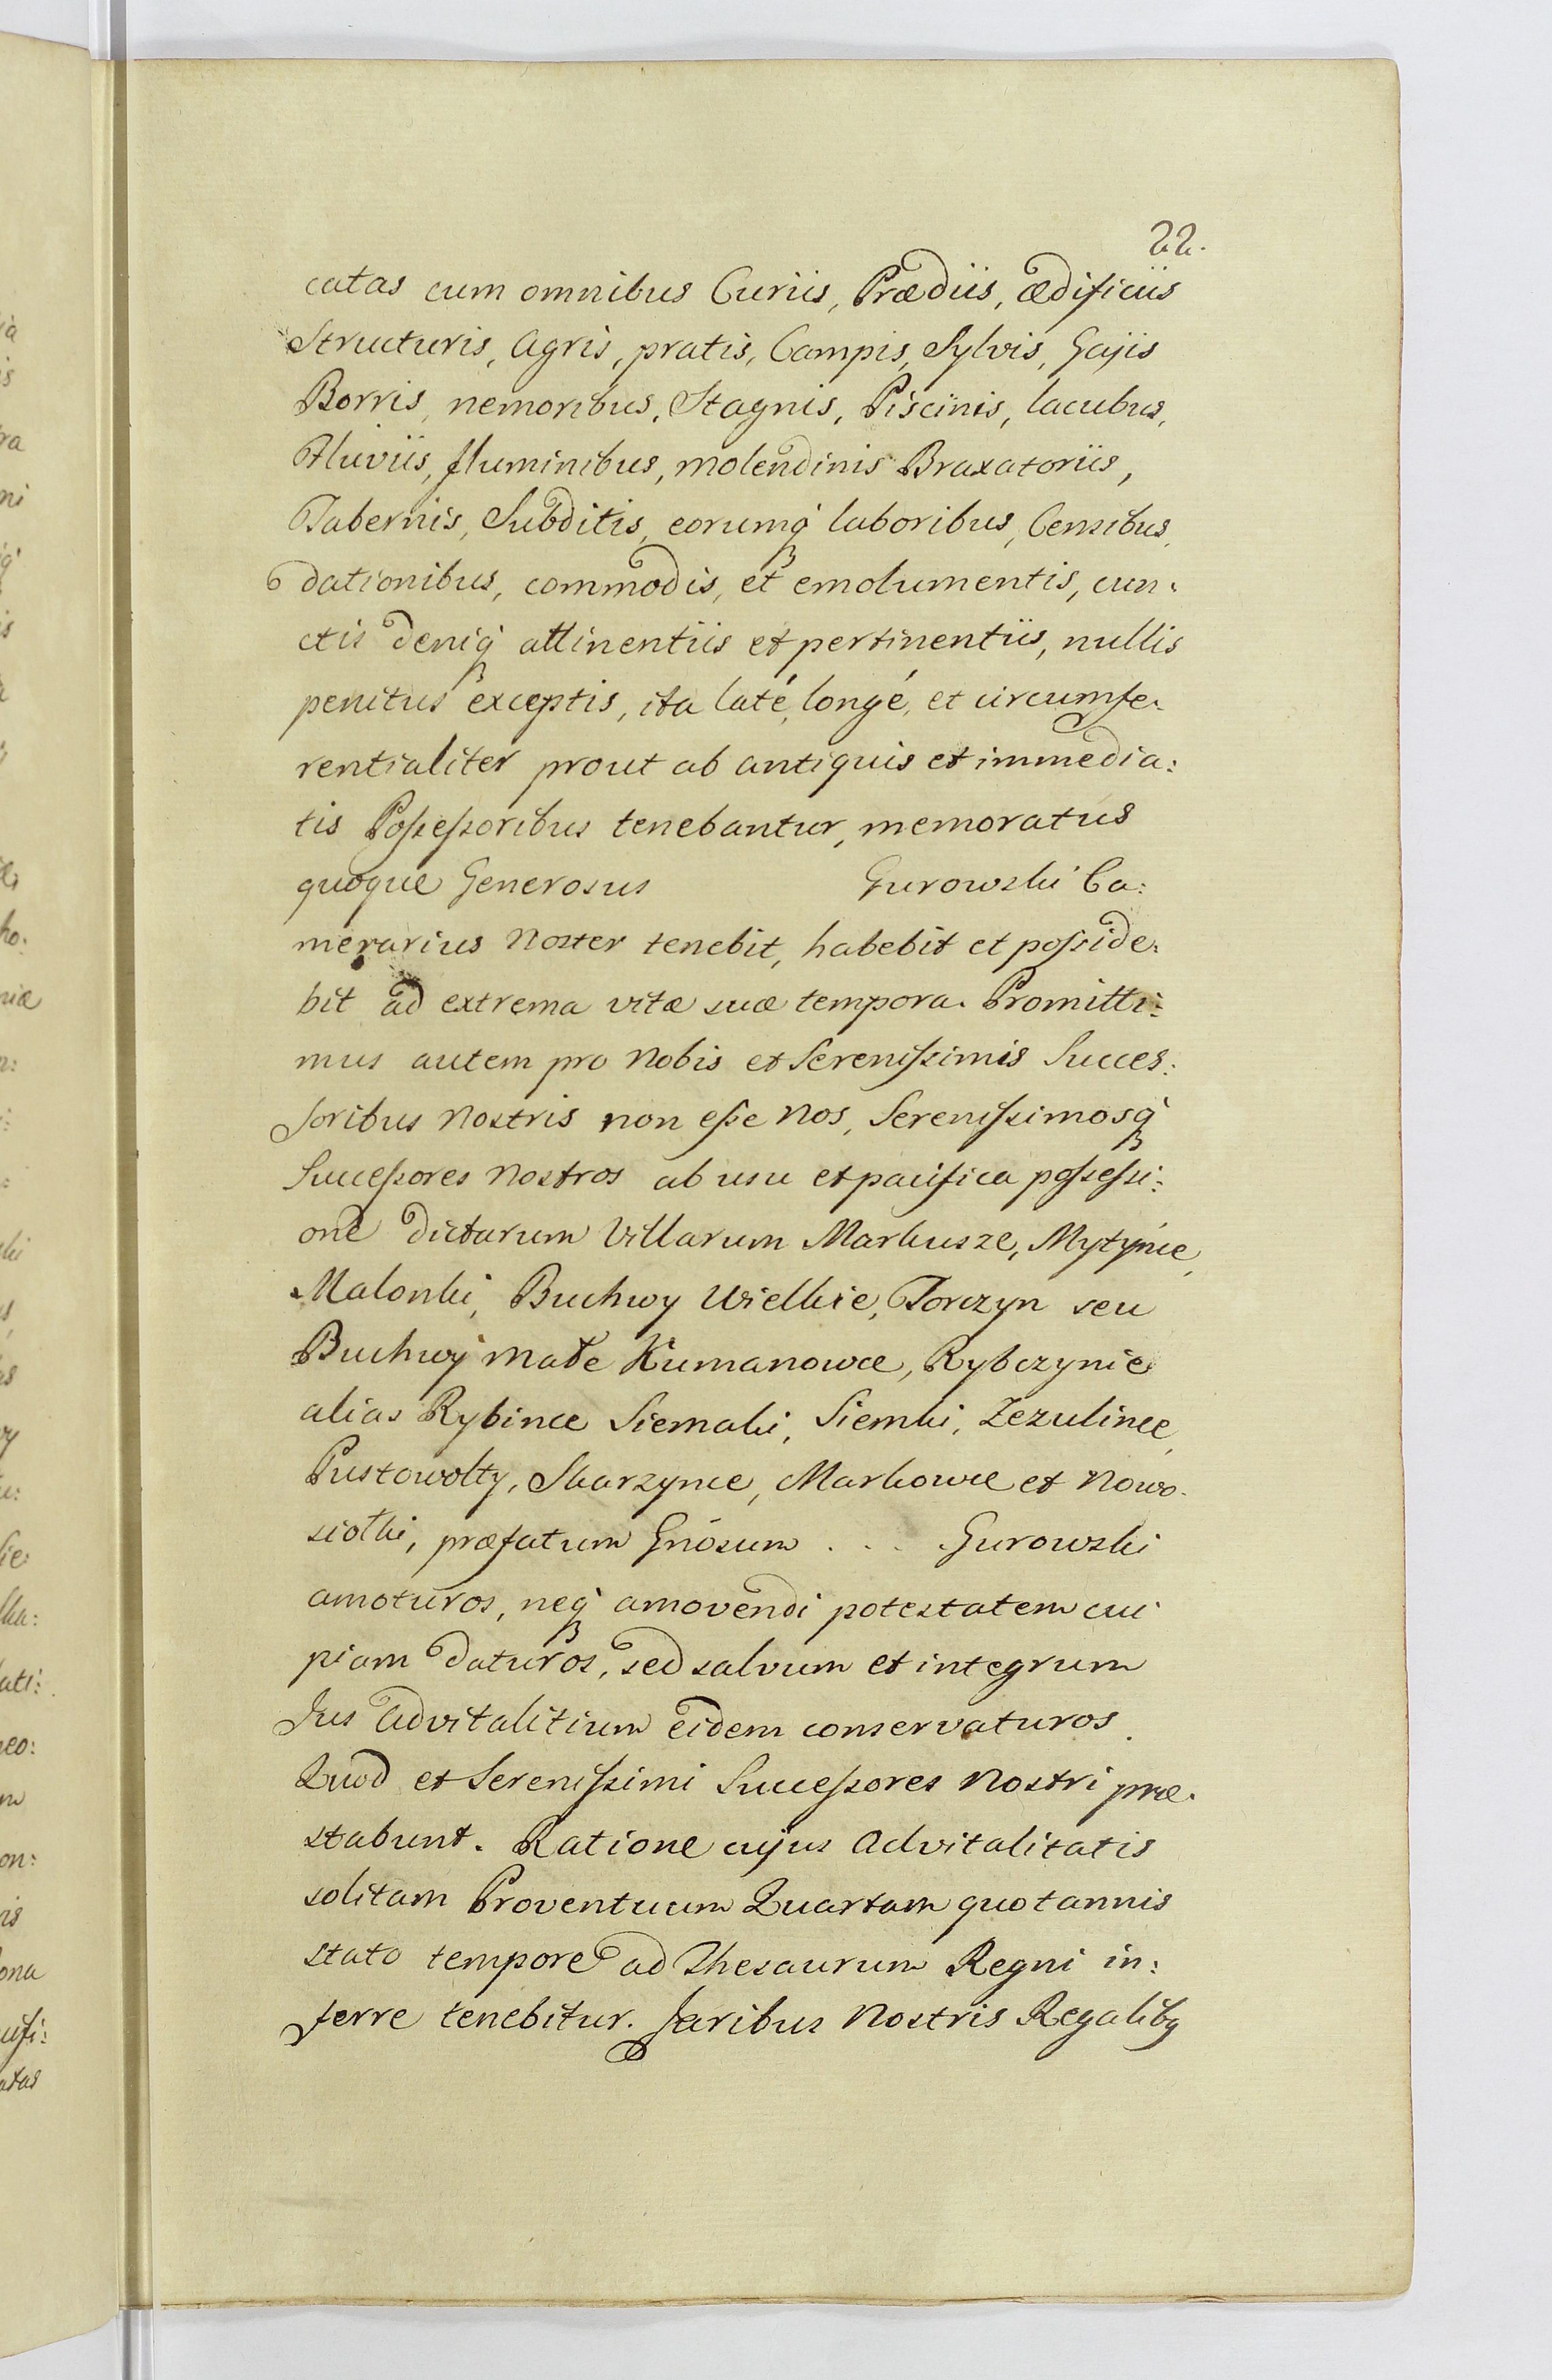 22.
catas cum omnibus Curiis, Prædiis, ædificiis
Structuris, Agris, pratis, Campis, Sylvis, Gajis
Borris, nemoribus, Stagnis, Piscinis, lacubus,
Fluviis, fluminibus, molendinis Braxatoriis,
Tabernis, Subditis, eorumq́ laboribus, Censibus,
dationibus, commodis, et emolumentis, cun:
ctis deniq́ attinentiis et pertinentiis, nullis
penitus exceptis, ita laté, longé, et circumfe:
rentialiter prout ab antiquis et immedia:
tis Possessoribus tenebantur, memoratus
quoque Generosus Gurowski Ca:
merarius Noster tenebit, habebit et posside:
bit ad extrema vitæ suæ tempora. Promitti:
mus autem pro Nobis et Serenissimis Succes:
soribus Nostris non esse Nos, Serenissimosq́
Successores Nostros ab usu et pacifica possessi:
one dictarum Villarum Markusze, Mytynie,
Malonki, Buchwy Wielkie, Torczyn seu
Buchwy małe Kumanowce, Rybczynie
alias Rybince Siemaki, Siemki, Zezulince,
Pustowołty, Skarzynce, Markowce et Nowo-
siołki, præfatum Gnósum . . . Gurowski
amoturos, neq́ amovendi potestatem cui
piam daturos, sed salvum et integrum
Jus Advitalitium eidem conservaturos.
Quod et Serenissimi Successores Nostri præ:
stabunt. Ratione cujus Advitalitatis
solitam Proventuum Quartam quotannis
stato tempore ad Thesaurum Regni in:
ferre tenebitur. Juribus Nostris Regalibq